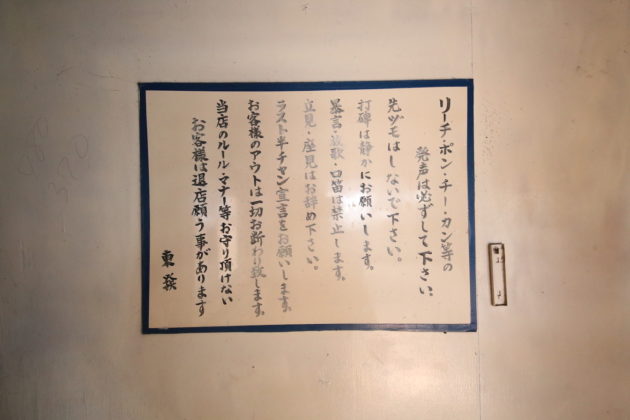 リーチ・ポン・チー・カン等の
発声は必ずして下さい。
先ヅモはしないで下さい。
打牌は静かにお願いします。
暴言・放歌・口笛は禁止します。
立見・座見はお辞め下さい。
ラスト半チャン宣言をお願いします。
お客様のアウトは一切お断わり致します。
当店のルール・マナー等お守り頂けない
お客様は退店願う事があります
東發